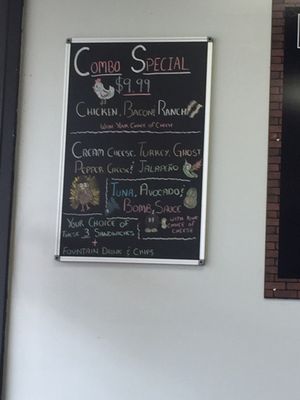 Combo Special
$9.99
Chicken, Bacon, Ranch
With Your Choice of Cheese
Cream Cheese, Turkey, Ghost
Pepper Cheese & Jalapeño
Tuna, Avocado &
Bomb Sauce
With Your
Choice of
Cheese
Your Choice of
These 3 Sandwiches
+
Fountain Drink & Chips